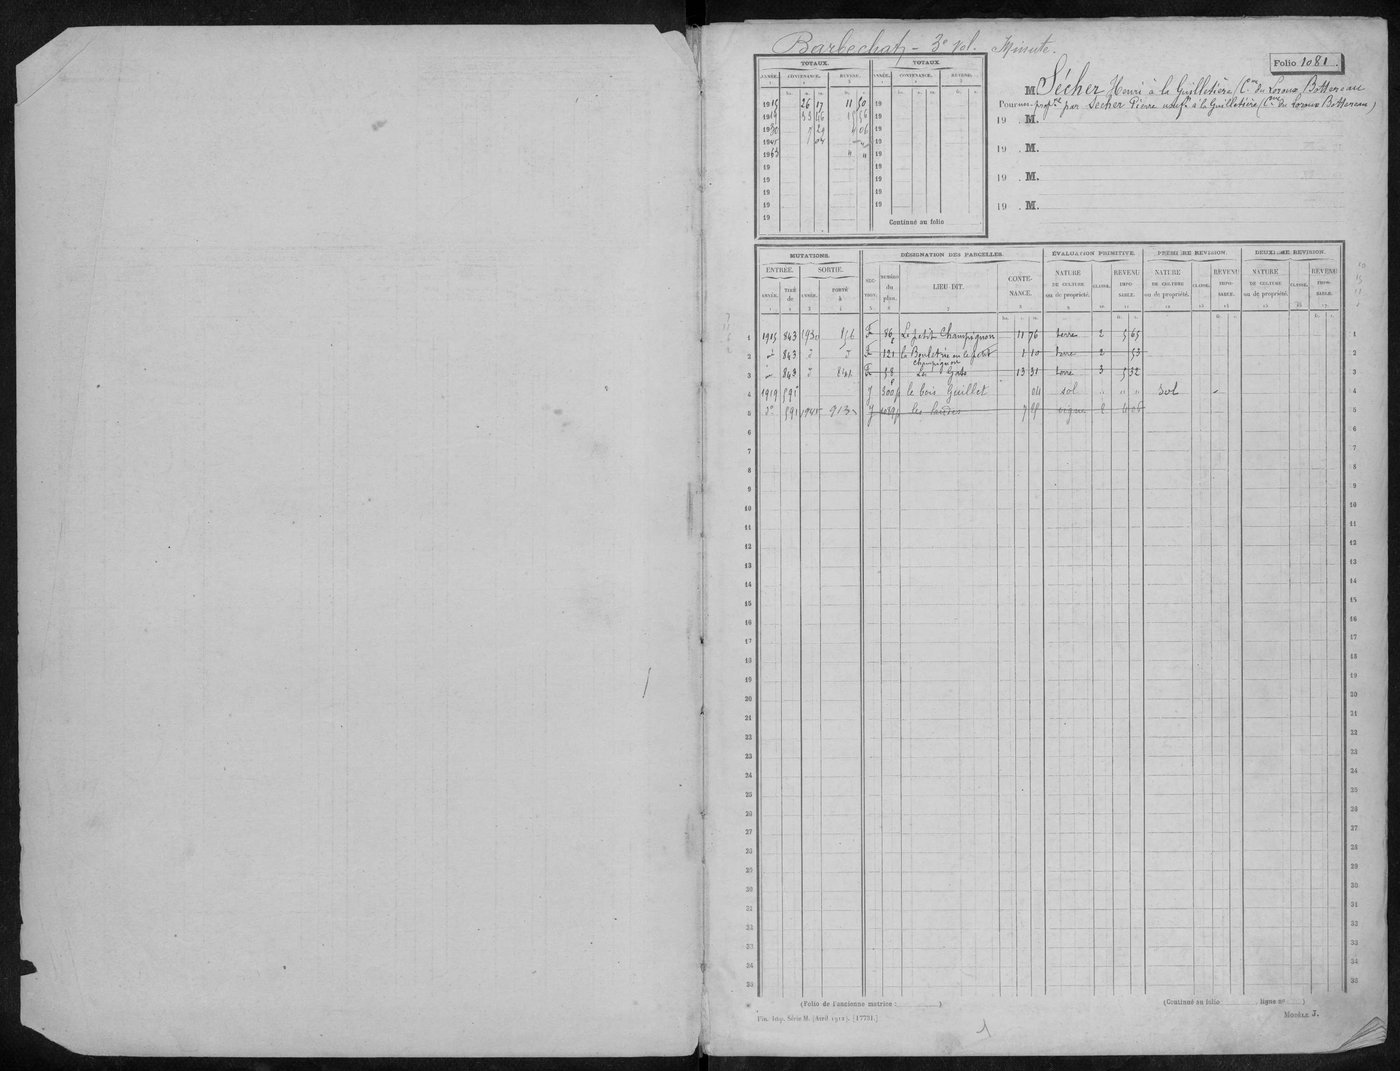 Barbechat, 3e vol. Minute.
Folio 1081
M Sécher Henri à la Guilletière (Cne du Loroux Bottereau
Pour propté par Sécher Pierre à la Guilletière (Cne du Loroux Bottereau)
19 . M.
19 . M.
19 . M.
19 . M.
TOTAUX. TOTAUX.
ANNÉE. CONTENANCE. REVENU. ANNÉE. CONTENANCE. REVENU.
ha. a. ca. fr. c. ha. a. ca. fr. c.
1915 26 17 11 50 19
1919 33 66 15 56 19
1930 7 29 4 06 19
1945 04 19
1963 " " 19
19 19
19 19
19 19
19 19
19 Continué au folio
MUTATIONS. DÉSIGNATION DES PARCELLES. ÉVALUATION PRIMITIVE. PREMIÈRE RÉVISION. DEUXIÈME RÉVISION.
ENTRÉE. SORTIE. SECTION. NUMÉRO du plan. LIEU DIT. CONTENANCE. NATURE DE CULTURE ou de propriété. CLASSE. REVENU IMPOSABLE. NATURE DE CULTURE ou de propriété. CLASSE. REVENU IMPOSABLE. NATURE DE CULTURE ou de propriété. CLASSE. REVENU IMPOSABLE.
ANNÉE. TIRÉ de ANNÉE. PORTÉ à
1 1915 843 1930 F 86 Le petit Champignon 11 76 terre 2 5 65 1
2 do 843 F 121 la Bouletrie ou le petit Champignon 1 10 terre 2 53 2
3 do 843 F 58 Le Gats 13 31 terre 3 5 32 3
4 1919 591 J 300p le bois Guillet 04 sol " " " sol 4
5 do 591 1945 913 J 1089p les landes 7 25 vigne 2 4 06 5
6 6
7 7
8 8
9 9
10 10
11 11
12 12
13 13
14 14
15 15
16 16
17 17
18 18
19 19
20 20
21 21
22 22
23 23
24 24
25 25
26 26
27 27
28 28
29 29
30 30
31 31
32 32
33 33
34 34
35 35
(Folio de l'ancienne matrice : )
(Continué au folio , ligne no )
Fin. Imp. Série M. [Avril 1912]. [17731.]
MODÈLE J.
1